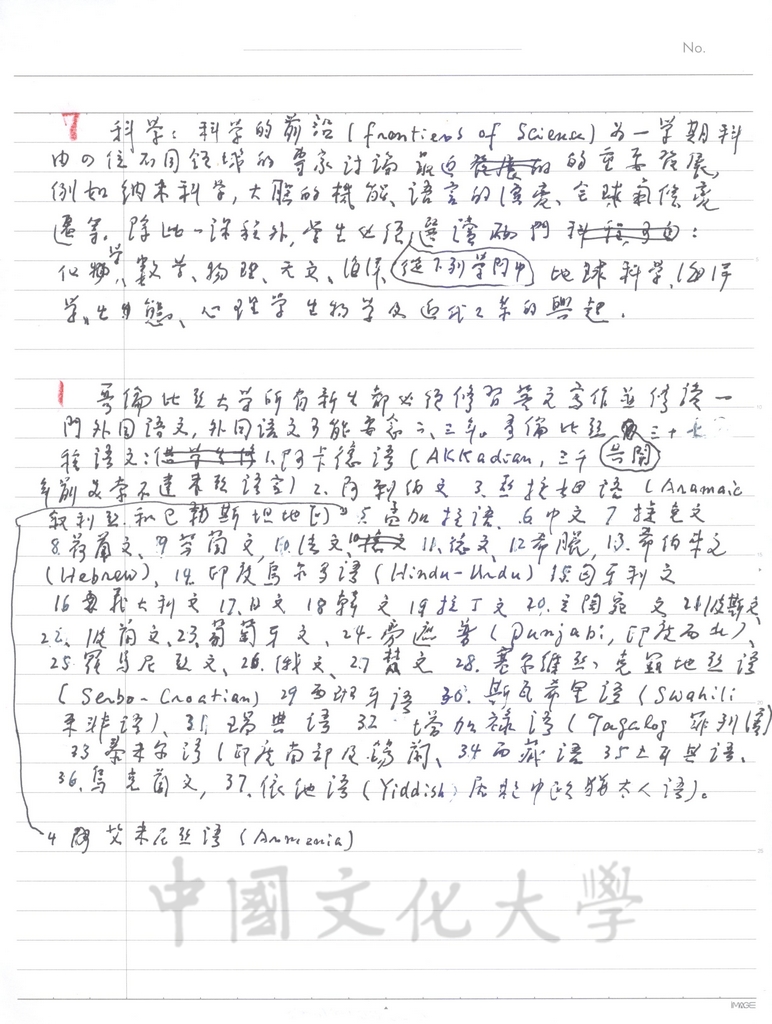 No.
7 科学：科学的前沿 (frontiers of Science) 为一学期科
由の位不同领域的専家讨論最近的重要發展,
例如纳米科学,大脑的機能、語言的演変、全球氣候変
遷等。除此一课程外,学生必須從下列学門中選讀兩門：
化学、数学、物理、天文、地球科学、海洋
学、生態、心理学生物学及近代工業的興起.
1 哥倫比亞大学所有新生都必須修習英文寫作並修读一
門外国語文,外国語文可能要念二、三年。哥倫比亞共開三十七
程語文：1.阿卡德語 (AKKadian, 三千
年前文学不達来亞語言) 2. 阿剌伯文 3.亞拉姆語 (Aramaic
叙利亞和巴勒斯坦地区) 5.孟加拉語. 6.中文 7捷克文
8.荷蘭文、9.芬蘭文, 10.法文、11.德文、12.希臘, 13.希伯来文
(Hebrew)、14.印度乌尔多語 (Hindu-Urdu) 15.匈牙利文
16義大利文 17.日文 18韓文 19拉丁文 20.立陶宛文 21波斯文、
22.波蘭文、23.葡萄牙文、24.旁遮普 (Punjabi, 印度西北)、
25.羅馬尼亞文、26.俄文、27梵文 28.塞尔維亞、克羅地亞語
(Serbo-Croatian) 29西班牙語 30.斯瓦希里語 (Swahili
東非語)、31.瑞典語 32.塔加禄語 (Tagalog 菲列濱)
33泰米尔語 (印度南部及錫蘭、34西藏語 35土耳其語、
36.烏克蘭文, 37.依地語 (Yiddish 居於中欧猶太人語)。
4 阿艾米尼亞語 (Armenia)
中國文化大學
IMAGE